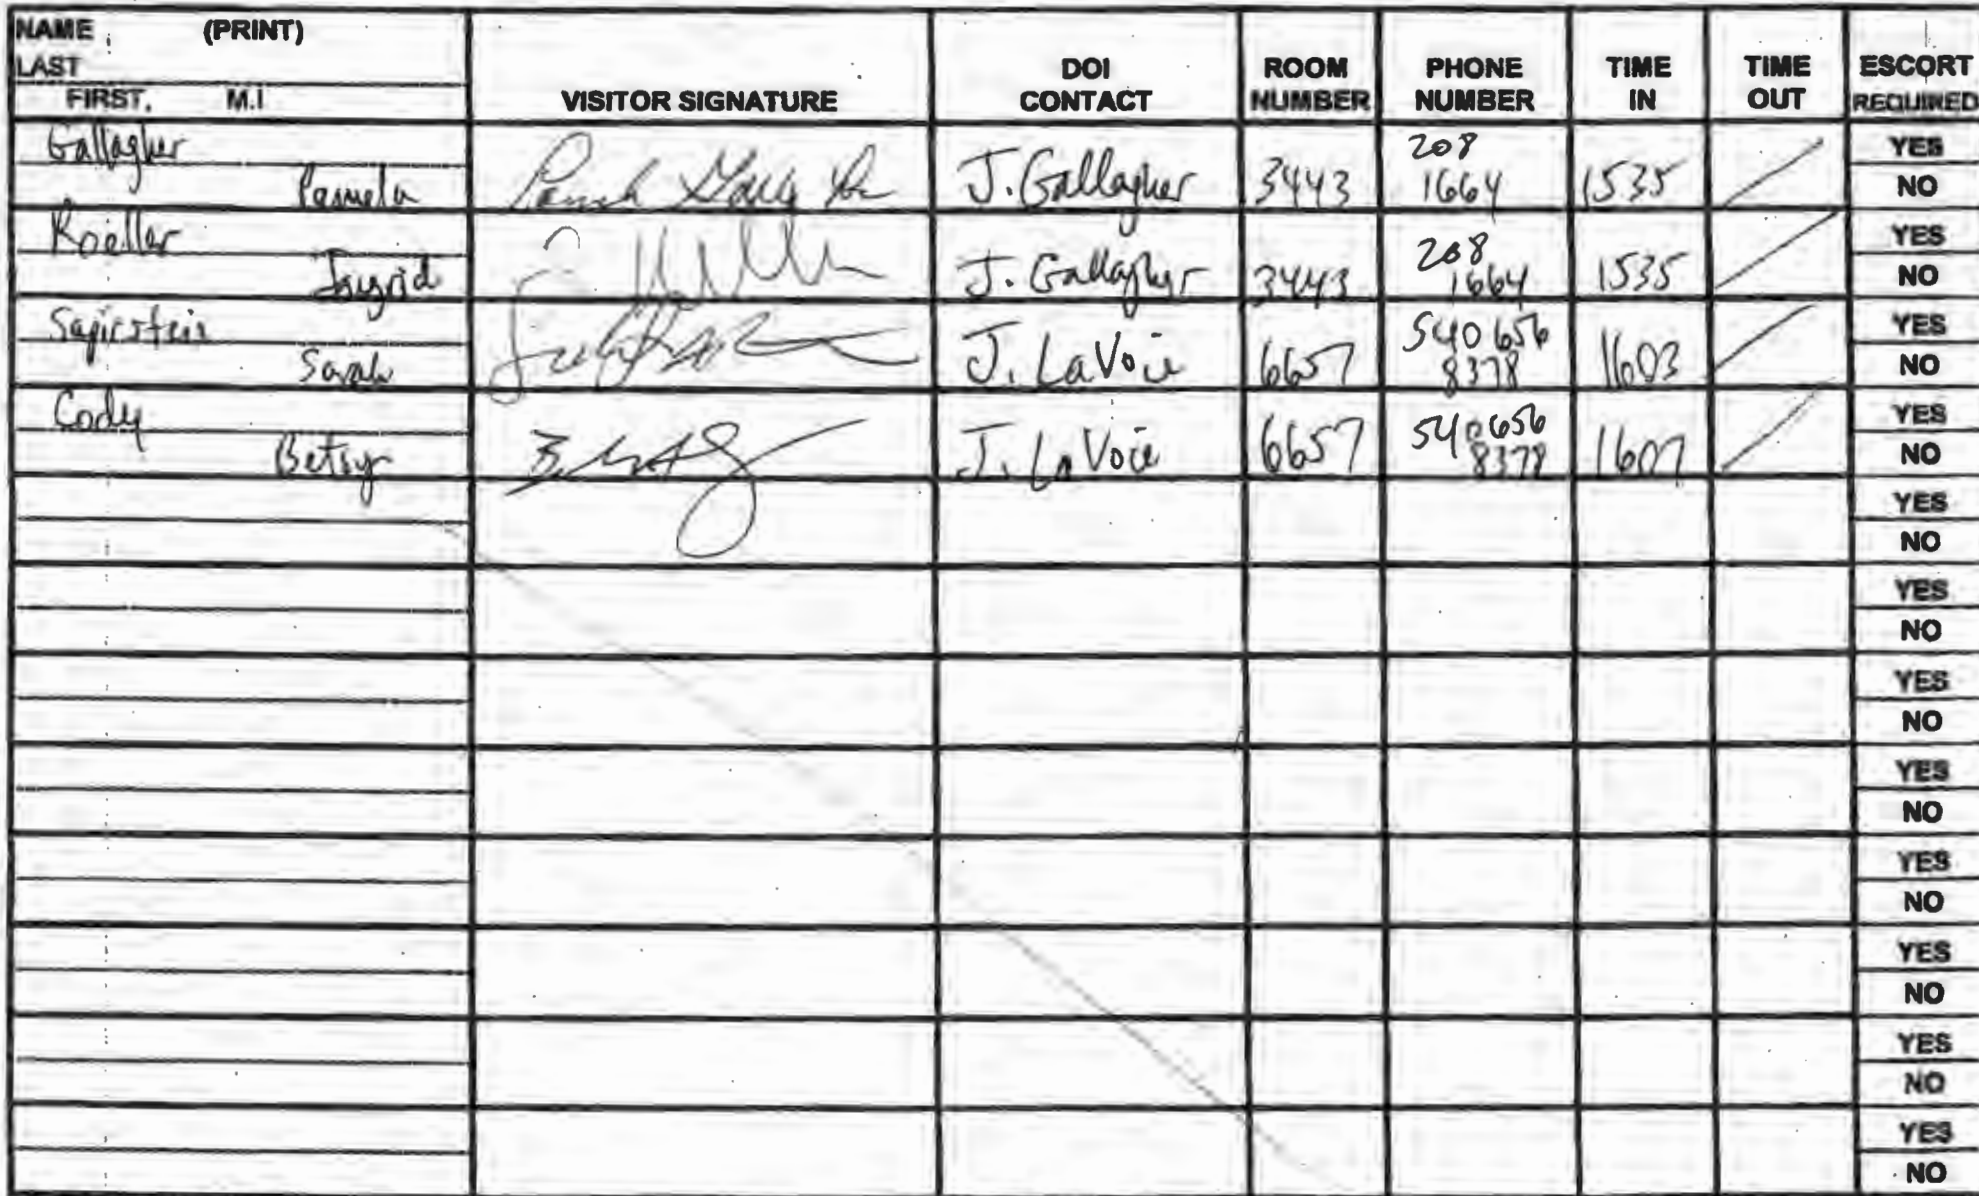 NAME (PRINT)
LAST
FIRST, M.I
VISITOR SIGNATURE
DOI CONTACT
ROOM NUMBER
PHONE NUMBER
TIME IN
TIME OUT
ESCORT REQUIRED
Gallagher
Pamela
J. Gallagher
3443
208
1664
1535
YES
NO
Koeller
Ingrid
J. Gallagher
3443
208
1664
1535
YES
NO
Sapirstein
Sarah
J. LaVoie
6657
540 656
8378
1603
YES
NO
Cody
Betsy
J. LaVoie
6657
540 656
8378
1607
YES
NO
YES
NO
YES
NO
YES
NO
YES
NO
YES
NO
YES
NO
YES
NO
YES
NO